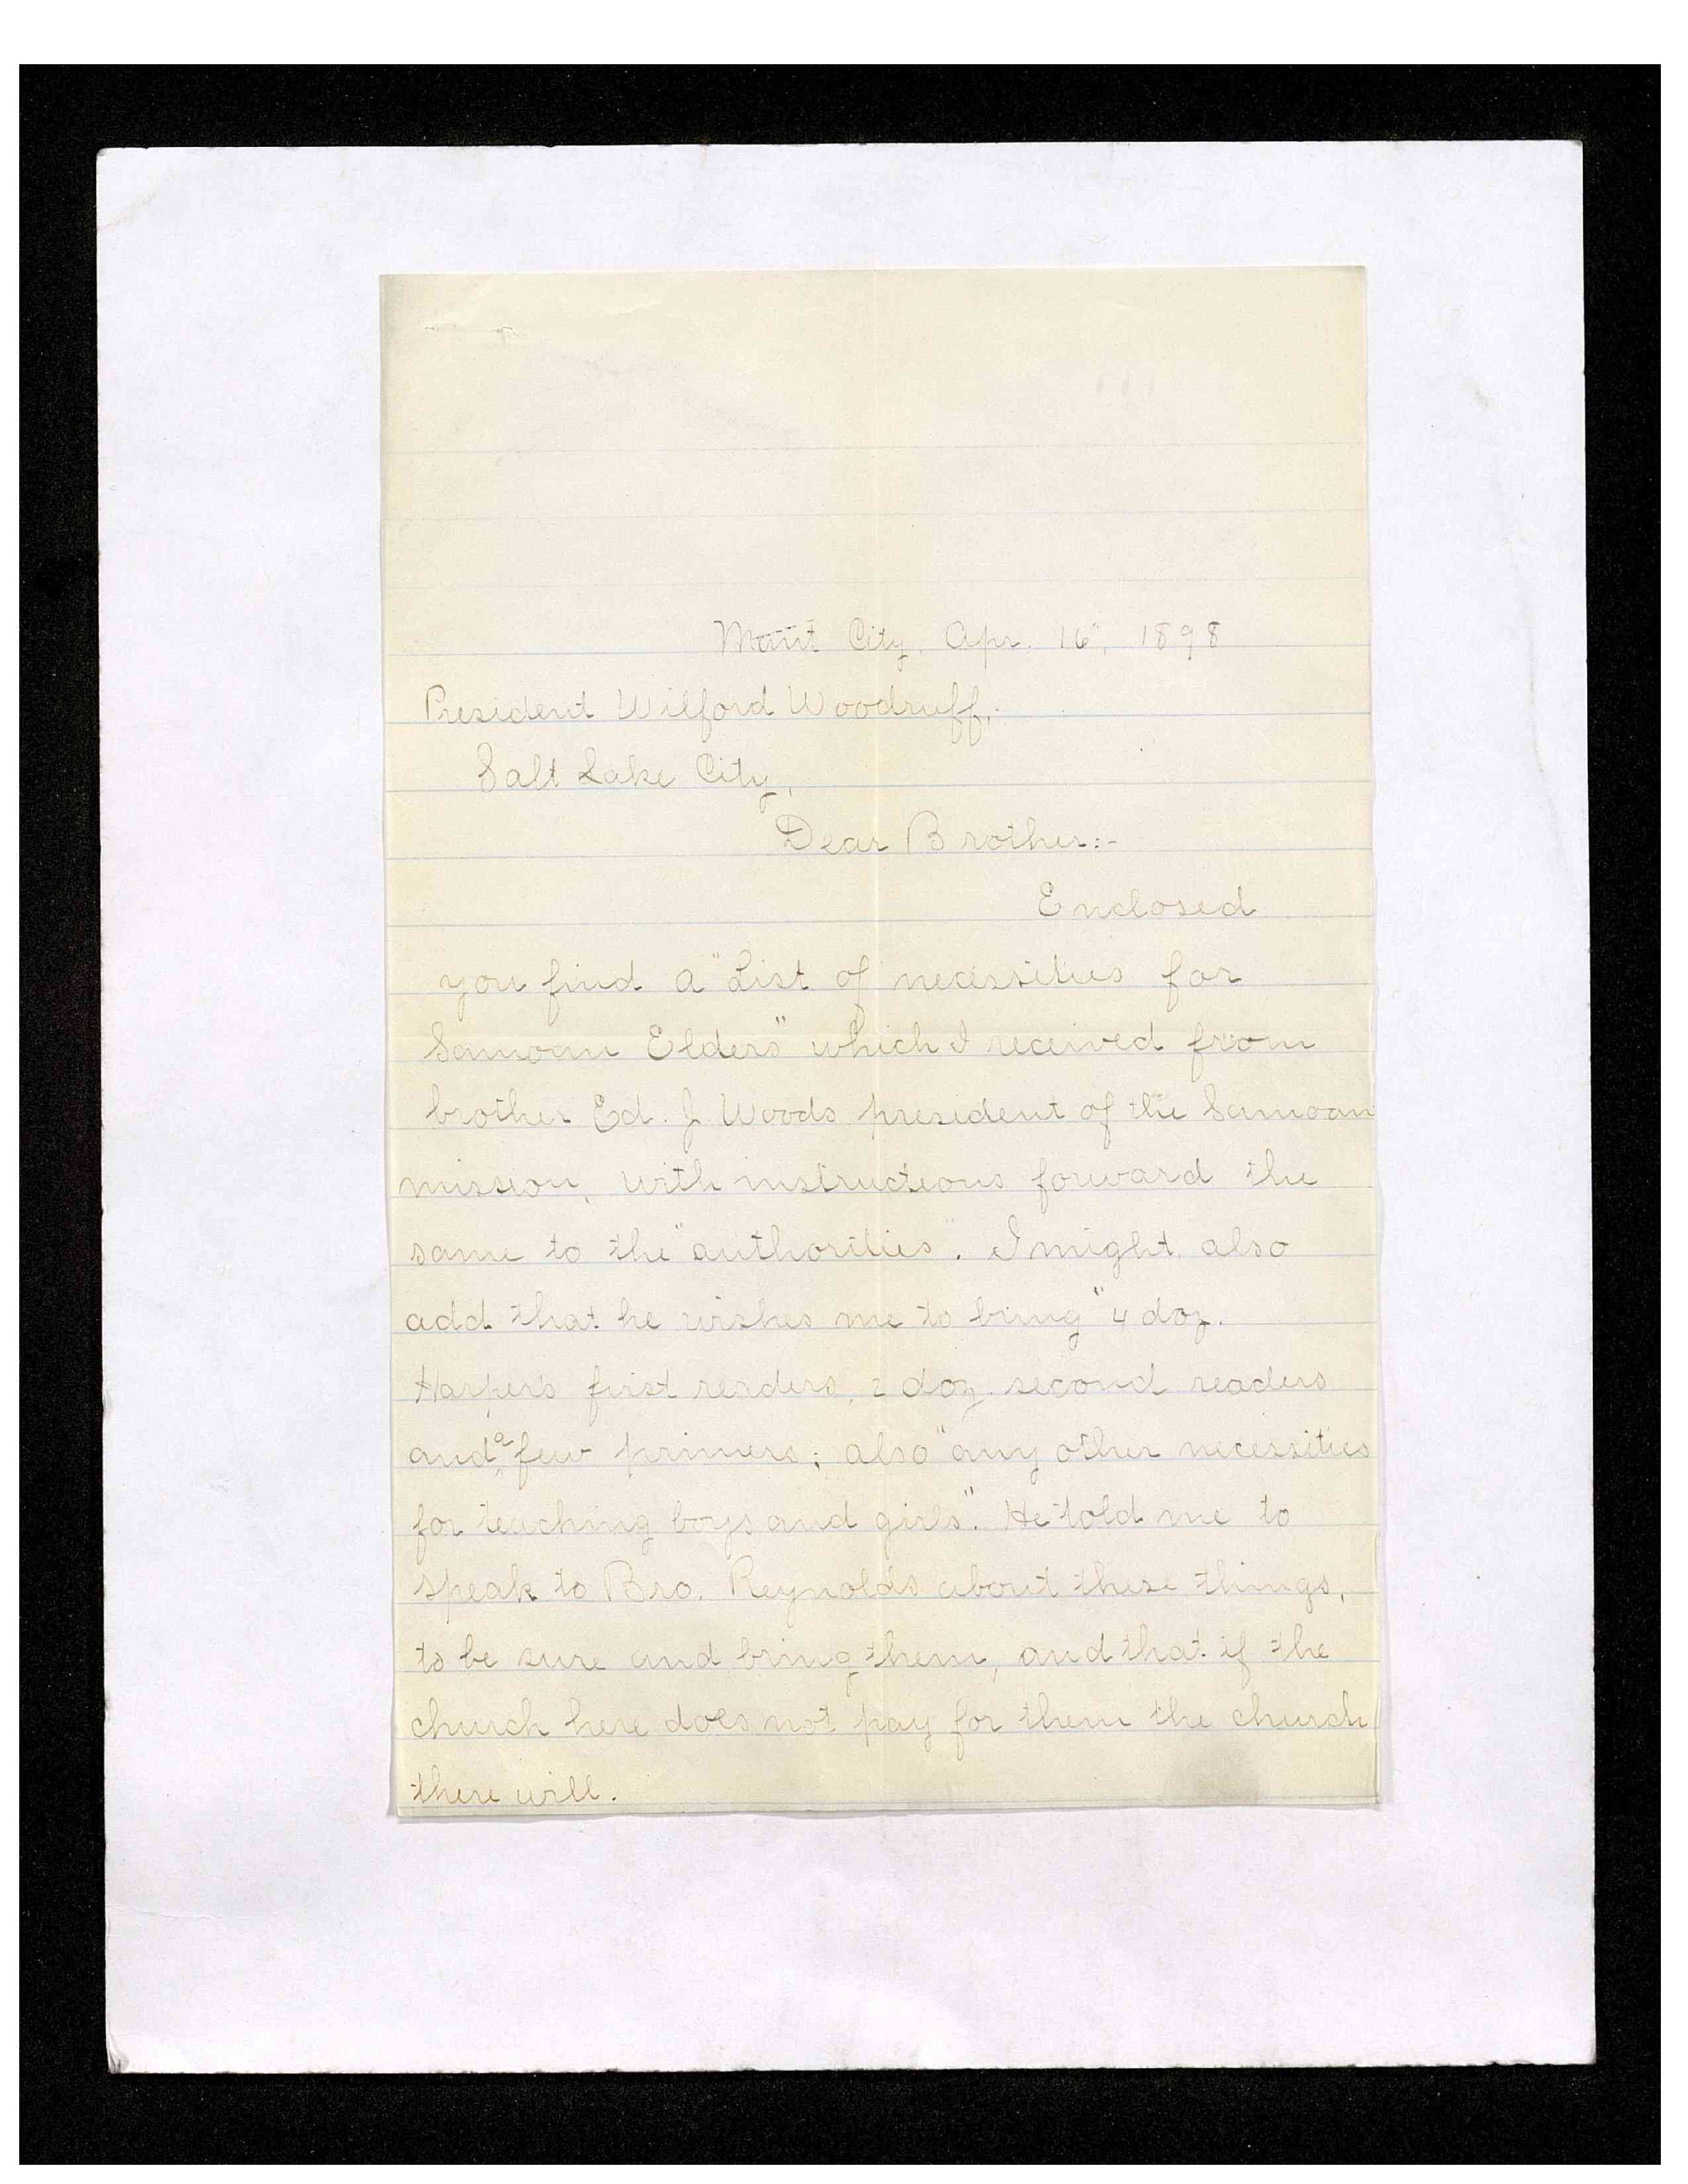 Manti City, Apr. 16", 1898
President Wilford Woodruff,:
Salt Lake City,
Dear Brother:-
Enclosed
you find a "List of necessities for
Samoan Elders" which I received from
brother Ed. J. Woods president of the Samoan
mission, with instructions forward the
same to the "authorities". I might also
add that he wishes me to bring "4 doz.
Harper's first readers, 2 doz. second readers
and a few primers; also "any other necessities
for teaching boys and girls". He told me to
speak to Bro. Reynolds about these things,
to be sure and bring them, and that if the
church here does not pay for them the church
there will.